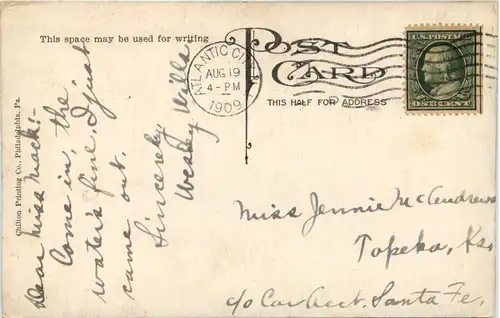 This space may be used for writing
POST CARD
THIS HALF FOR ADDRESS
ATLANTIC CITY
AUG 19
4-PM
1909
U.S. POSTAGE
ONE CENT
Chilton Printing Co., Philadelphia, Pa.
Dear Miss Mack:-
Come in, the
water's fine, I just
came out.
Sincerely,
Wesley Wills
Miss Jennie McAndrews
Topeka, Ks.
c/o Car Acct. Santa Fe.